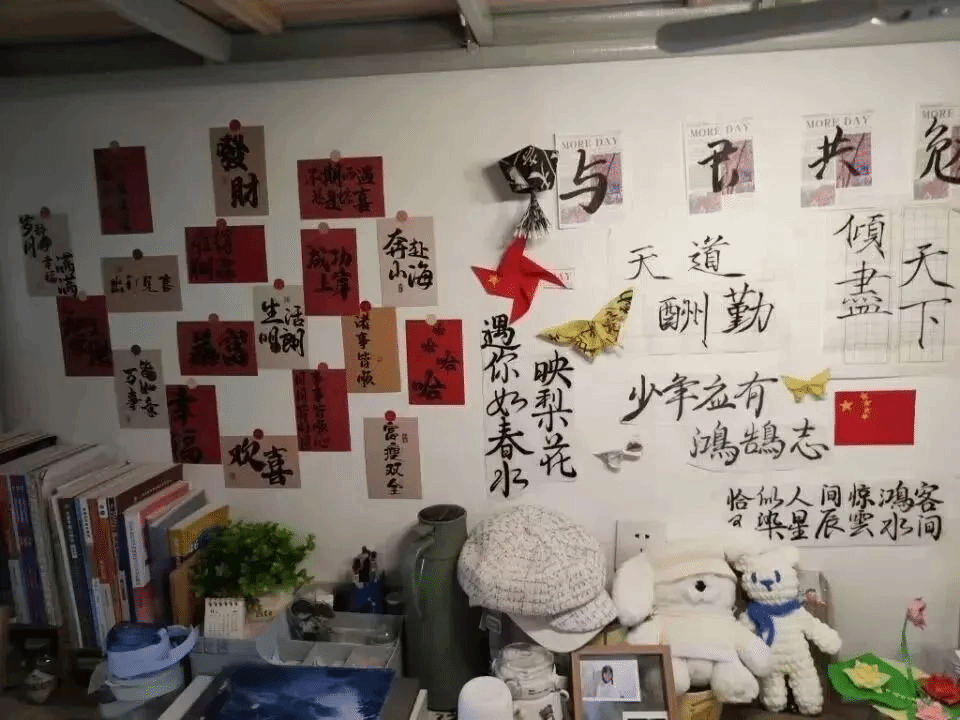 發財
不期而遇
總是驚喜
岁月静好
幸福满满
成功上岸
奔赴山海
生活明朗
诸事皆顺
哈哈哈哈
万事
如意
幸福
欢喜
富瘦双全
MORE DAY
MORE DAY
MORE DAY
MORE DAY
与己共勉
天道
酬勤
傾盡
天下
遇你如春水
映梨花
少年应有
鴻鵠志
恰似人间惊鸿客
染星辰雲水间